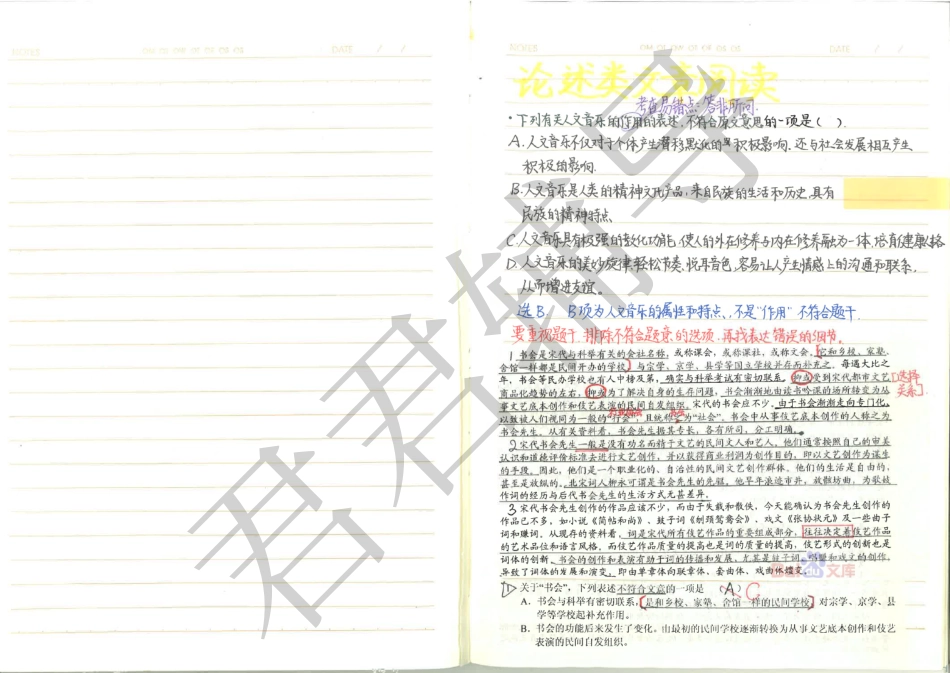 NOTES
DATE / /
论述类文章阅读
考查易错点：答非所问.
·下列有关人文音乐的作用的表述，不符合原文意思的一项是（ ）.
A.人文音乐不仅对于个体产生潜移默化的积极影响.还与社会发展相互产生
积极的影响.
B.人文音乐是人类的精神文化产品,来自民族的生活和历史,具有
民族的精神特点.
C.人文音乐具有极强的教化功能,使人的外在修养与内在修养融为一体,培育健康人格
D.人文音乐的美妙旋律,轻松节奏,悦耳音色,容易让人产生情感上的沟通和联系,
从而增进友谊。
选B. B项为人文音乐的属性和特点、不是"作用"不符合题干.
要重视题干.排除不符合题意的选项.再找表达错误的细节。
1.书会是宋代与科举有关的会社名称，或称课会，或称课社，或称文会。它和乡校、家塾、
舍馆一样都是民间开办的学校，与宗学、京学、县学等国立学校并存而补充之。每遇大比之
年，书会等民办学校也有人中榜及第，确实与科举考试有密切联系。抑或受到宋代都市文艺
[选择
关系]
商品化趋势的左右，抑或为了解决自身的生存问题，书会渐渐地由读书吟课的场所转变为丛
事文艺底本创作和伎艺表演的民间自发组织。宋代的书会应不少，由于书会渐渐走向专门化，
以致被人们视同为一般的"行会"，且统称为"社会"。书会中从事伎艺底本创作的人称之为
书会先生。从有关资料看，书会先生据其专长，各有所司，分工明确。
2宋代书会先生一般是没有功名而精于文艺的民间文人和艺人。他们通常按照自己的审美
认识和道德评价标准去进行文艺创作，并以获得商业利润为创作目的，即以文艺创作为谋生
的手段。因此，他们是一个职业化的、自治性的民间文艺创作群体。他们的生活是自由的，
甚至是放纵的。北宋词人柳永可谓是书会先生的先驱。他早年浪迹市井，放骸坊曲，为歌妓
作词的经历与后代书会先生的生活方式无甚差异。
3宋代书会先生创作的作品应该不少，而由于失载和散佚，今天能确认为书会先生创作的
作品已不多，如小说《简帖和尚》、鼓子词《刎颈鸳鸯会》、戏文《张协状元》及一些曲子
词和赚词。从现存的资料看，词是宋代所有伎艺作品的重要组成部分，往往决定着伎艺作品
的艺术品位和语言风格。而伎艺作品质量的提高也是词的质量的提高，伎艺形式的创新也是
词体的创新。书会的创作和表演有助于词的传播和发展，尤其是鼓子词、唱赚和戏文的创作，
导致了词体的发展和演变，即由单章体向联章体、套曲体、戏曲体嬗变。
1 关于"书会"，下列表述不符合文意的一项是 A C
A．书会与科举有密切联系，是和乡校、家塾、舍馆一样的民间学校，对宗学、京学、县
学等学校起补充作用。
B．书会的功能后来发生了变化。由最初的民间学校逐渐转换为从事文艺底本创作和伎艺
表演的民间自发组织。
君君辅导
文库